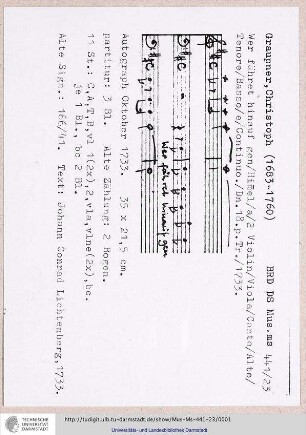 Graupner, Christoph (1683-1760) BRD DS Mus.ms 441/23
Wer führet hinauf gen/Himel/a/2 Violin/Viola/Canto/Alto/
Tenore/Basso/e/Continuo./Dn.18.p.Tr./1733.
Wer führet hinauf gen
Autograph Oktober 1733. 35 x 21,5 cm.
partitur: 3 Bl. Alte Zählung: 2 Bogen.
11 St.: C,A,T,B,vl 1(2x),2,vla,vlne(2x),bc.
je 1 Bl., bc 2 Bl.
Alte Sign.: 166/41. Text: Johann Conrad Lichtenberg,1733.
TECHNISCHE
UNIVERSITÄT
DARMSTADT
http://tudigit.ulb.tu-darmstadt.de/show/Mus-Ms-441-23/0001
Universitäts- und Landesbibliothek Darmstadt